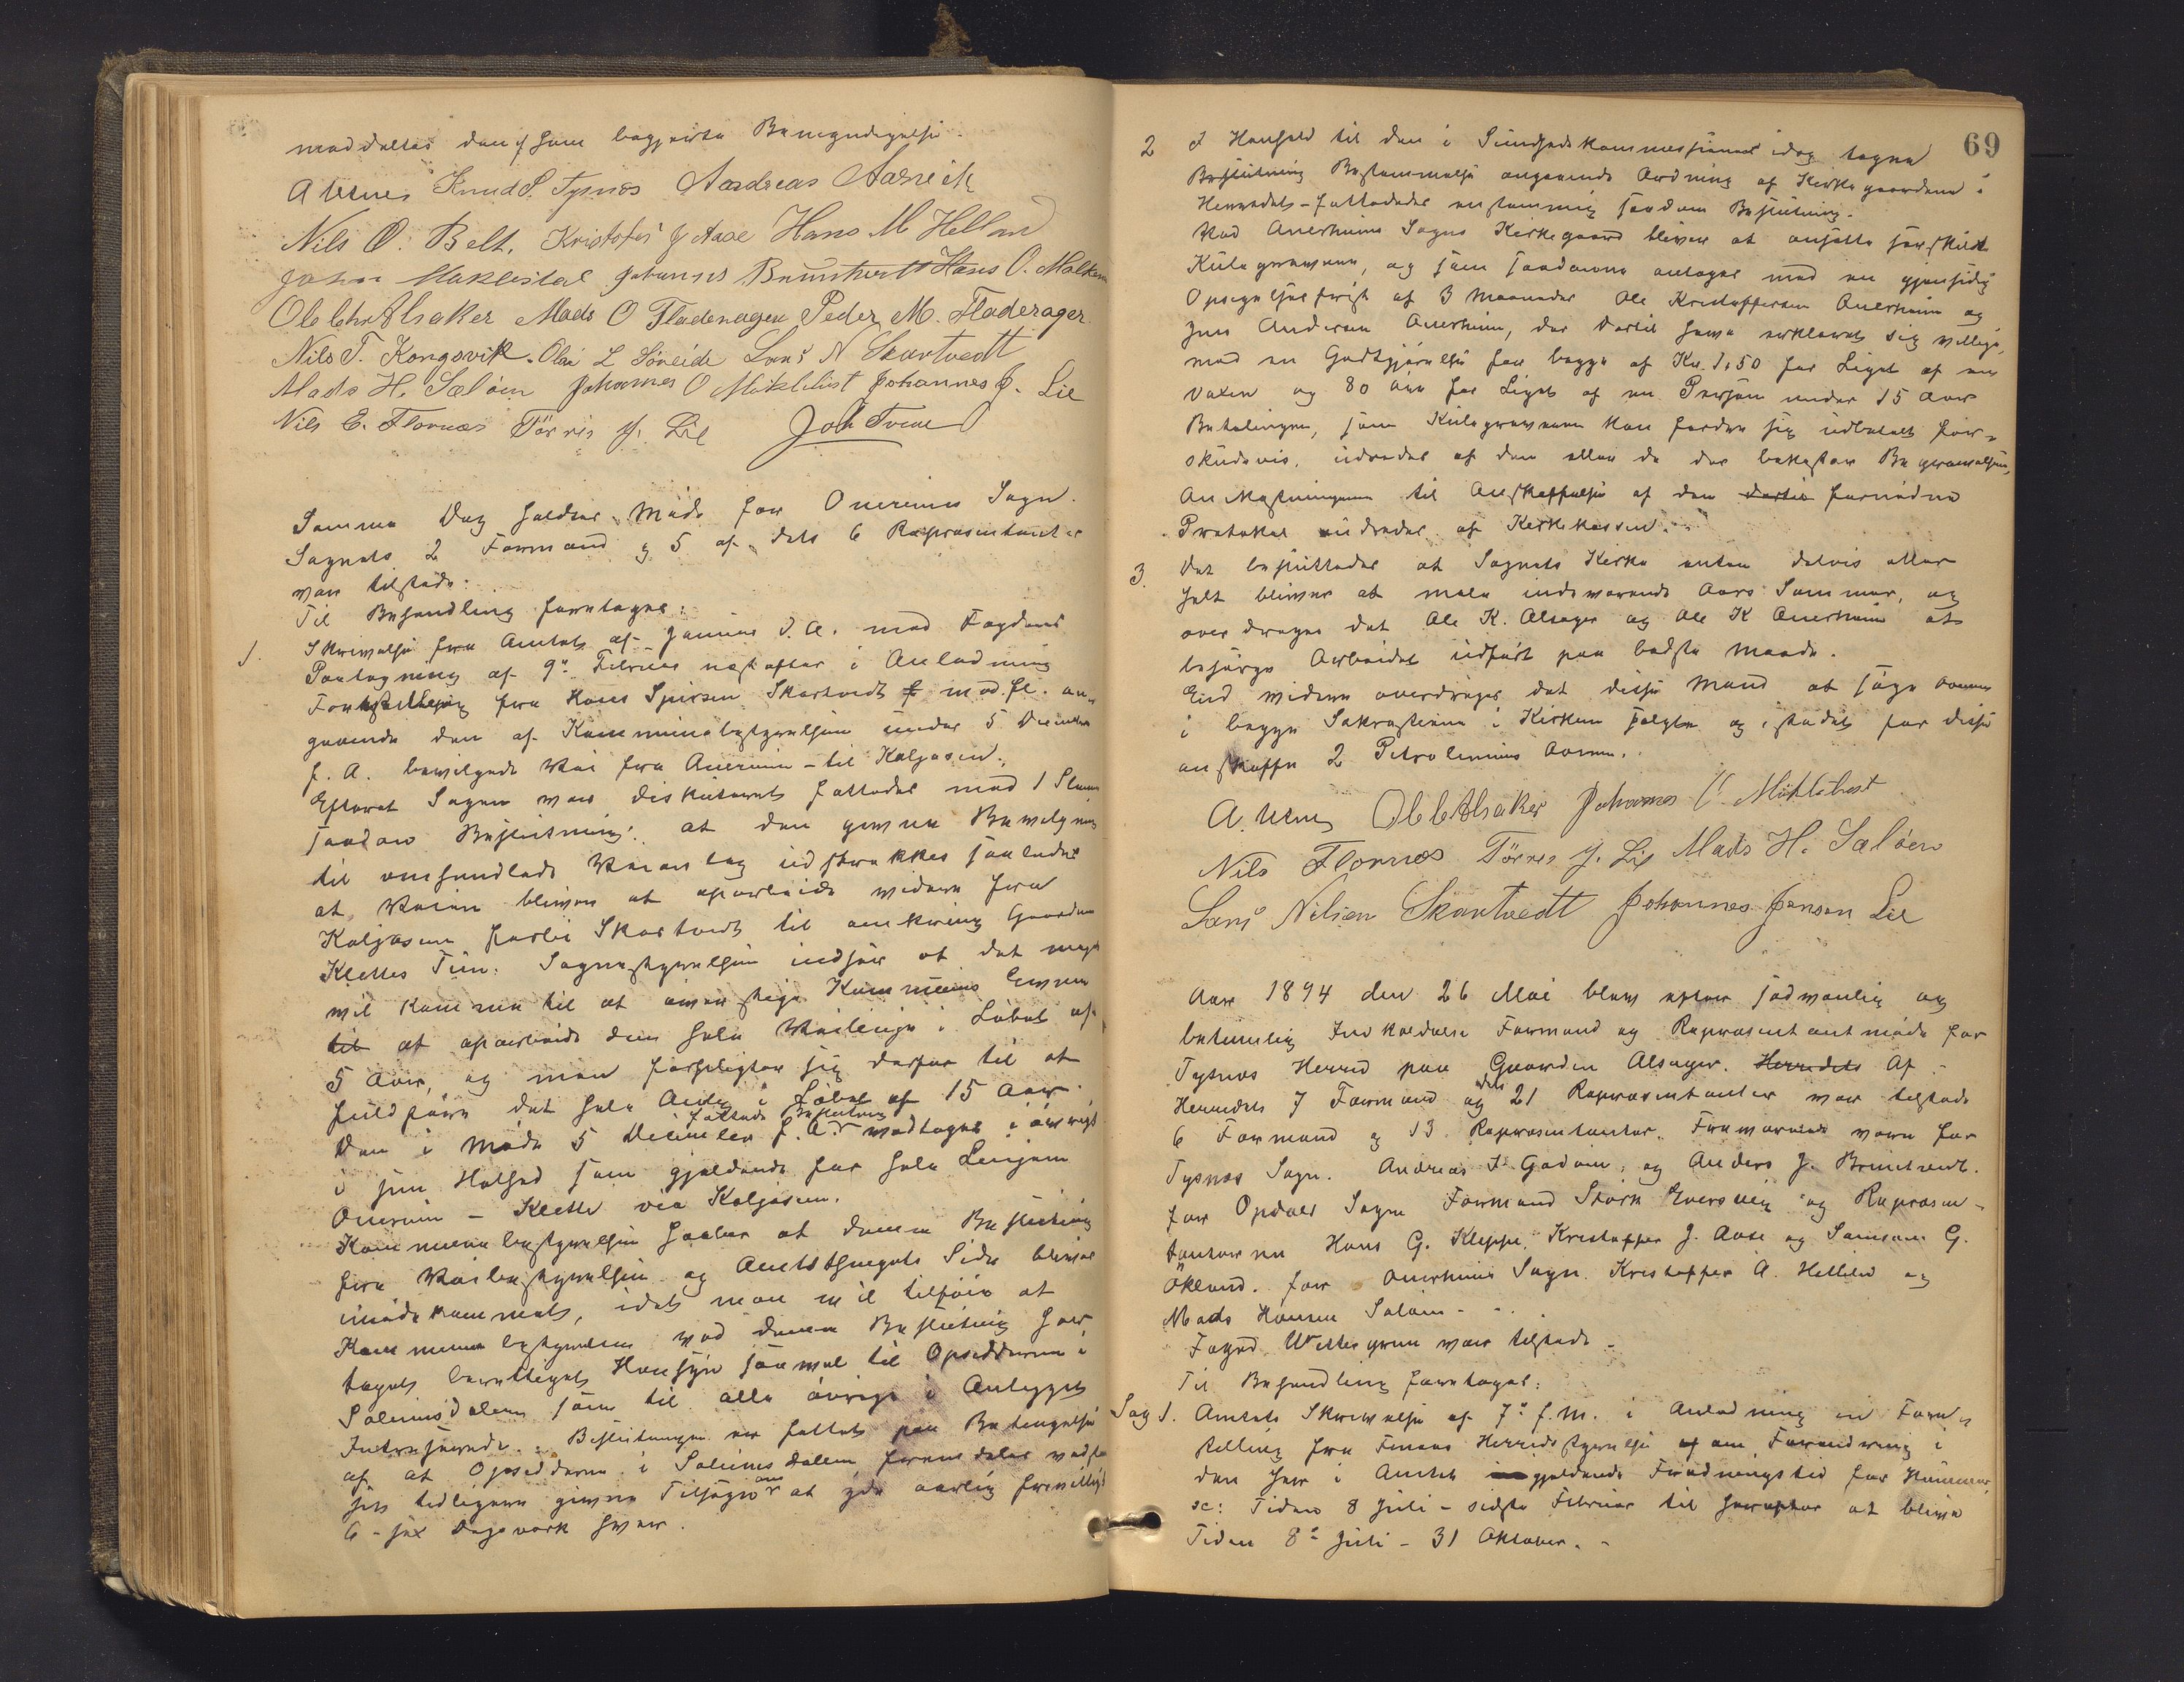 meddeltes den som begjærte Bemyndigelse.
A Uenes Knud S. Tysnes Andreas Aarvik
Nils O. Belt. Kristofer J Aase Hans M Helland
John Møklestal Johannes Bruntvedt Hans O. Malkenes
Ole Chr Alsaker Mads O Fladerager Peder M. Fladerager
Nils T. Kongsvik. Olai L Söreide Lars N Skartvedt
Mads H. Salöen Johannes O Møklebust Johannes J. Lie
Nils E. Flornæs Törres J. Lie Joh Tveit
Samme Dag holdtes Møde for Onerims Sogn.
Sognets 2 Formænd og 5 af dets 6 Repræsentanter
var tilstede.
Til Behandling foretoges:
1. Skrivelse fra Amtet af Januar d. A. med Fogdens
Paategning af 9de Februar næstefter i Anledning
Forestilling fra Hans Sjursen Skartvedt med fl. an-
gaaende den af Kommunebestyrelsen under 5 December
f. A. bevilgede Vei fra Onerim - til Kaljosen.
Efterat Sagen var diskuteret fattedes med 1 Stem
saadan Beslutning: at den givne Bevilgning
til omhandlede Veianlæg udstrækkes saaledes
at Veien bliver at oparbeide videre fra
Kaljosen forbi Skartvedt til omkring Gaarden
Klettes Tun. Sognestyrelsen indser at det meget
vil komme til at overstige Kommunens Evne
til at oparbeide den hele Veilinje i Löbet af
5 Aar, og man forpligter sig derfor til at
fuldføre det hele Anlæg i Löbet af 15 Aar.
Den i Møde 5 December f. A. fattede Beslutning vedtages i övrigt
i sin Helhed som gjeldende for hele Linjen
Onerim - Klette via Kaljosen.
Kommunebestyrelsen haaber at denne Beslutning
fra Veibestyrelsen og Amtsthingets Side bliver
imødekommet, idet man vil tilföie at
Kommunebestyrelsen ved denne Beslutning har
taget berettiget Hensyn saavel til Opsidderne i
Salimsdalen som til alle övrige i Anlægget
Interesserede. Beslutningen er fattet paa Betingelse
af at Opsidderne i Salimsdalen fremdeles vedstaar
sit tidligere givne Tilsagn om at yde aarlig frivilligt
6 - sex Dagsværk hver.
69
2 I Henhold til den i Sundhedskommissionen idag tagne
Beslutning Bestemmelse angaaende Ordning af Kirkegaardene i
Herredet - fattedes enstemmig saadan Beslutning.
Ved Onerheims Sogns Kirkegaard bliver at ansætte særskilt
Kulegraver, og som saadanne antages med en gjensidig
Opsigelsesfrist af 3 Maaneder Ole Kristoffersen Onerheim og
Jens Andersen Onerheim, der dertil have erklæret sig villige,
med en Godtgjörelse for begge af Kr. 1,50 for Liget af en
voxen og 80 Øre for Liget af en Person under 15 Aar
Betalingen, som Kulegraverne kan fordre sig udbetalt for-
skudsvis, udredes af den eller de der bekoster Begravelsen,
Omkostningerne til Anskaffelse af den dertil fornødne
Protokol udredes af Kirkekassen.
3. Det besluttedes at Sognets Kirke enten delvis eller
helt bliver at male indeværende Aars Sommer, og
overdrages det Ole K. Alsager og Ole K Onerheim at
besörge Arbeidet udført paa bedste Maade.
End videre overdrages det disse Mænd at søge Ovnene
i begge Sakristierne i Kirken solgte og istedet for disse
anskaffe 2 Petroliums Ovne.
A. Uenes Ole C Alsaker Johannes O Møklebust
Nils Flornæs Törres J. Lie Mads H. Salöen
Lars Nilsen Skartvedt Johannes Jensen Lie
Aar 1894 den 26 Mai blev efter sedvanlig og
betimelig Indkaldelse Formænd og Repræsentantmøde for
Tysnes Herred paa Gaarden Alsager. Herredets Af
Herredets 7 Formænd og dets 21 Repræsentanter var tilstede
6 Formænd og 13 Repræsentanter. Fraværende vare for
Tysnes Sogn. Andreas J. Godöen, og Anders J. Bruntvedt.
for Opdals Sogn Formand Störk Eversvig og Repræsen-
tanterne Hans G. Kleppe, Kristoffer J. Aase og Samson G.
Økland. for Onerheims Sogn. Kristoffer A. Helleld og
Mads Hansen Salöen.
Foged Wettergren var tilstede.
Til Behandling foretoges:
Sag 1. Amtets Skrivelse af 7de f. M. i Anledning en Fore-
stilling fra Finaas Herredsstyrelse om Forandring i
den her i Amtet gjeldende Fredningstid for Hummer
ɔ: Tiden 8 Juli - sidste Februar til herefter at blive
Tiden 8de Juli - 31 Oktober.